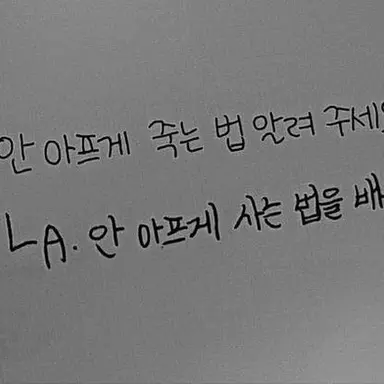 안 아프게 죽는 법 알려 주세요
LA. 안 아프게 사는 법을 배